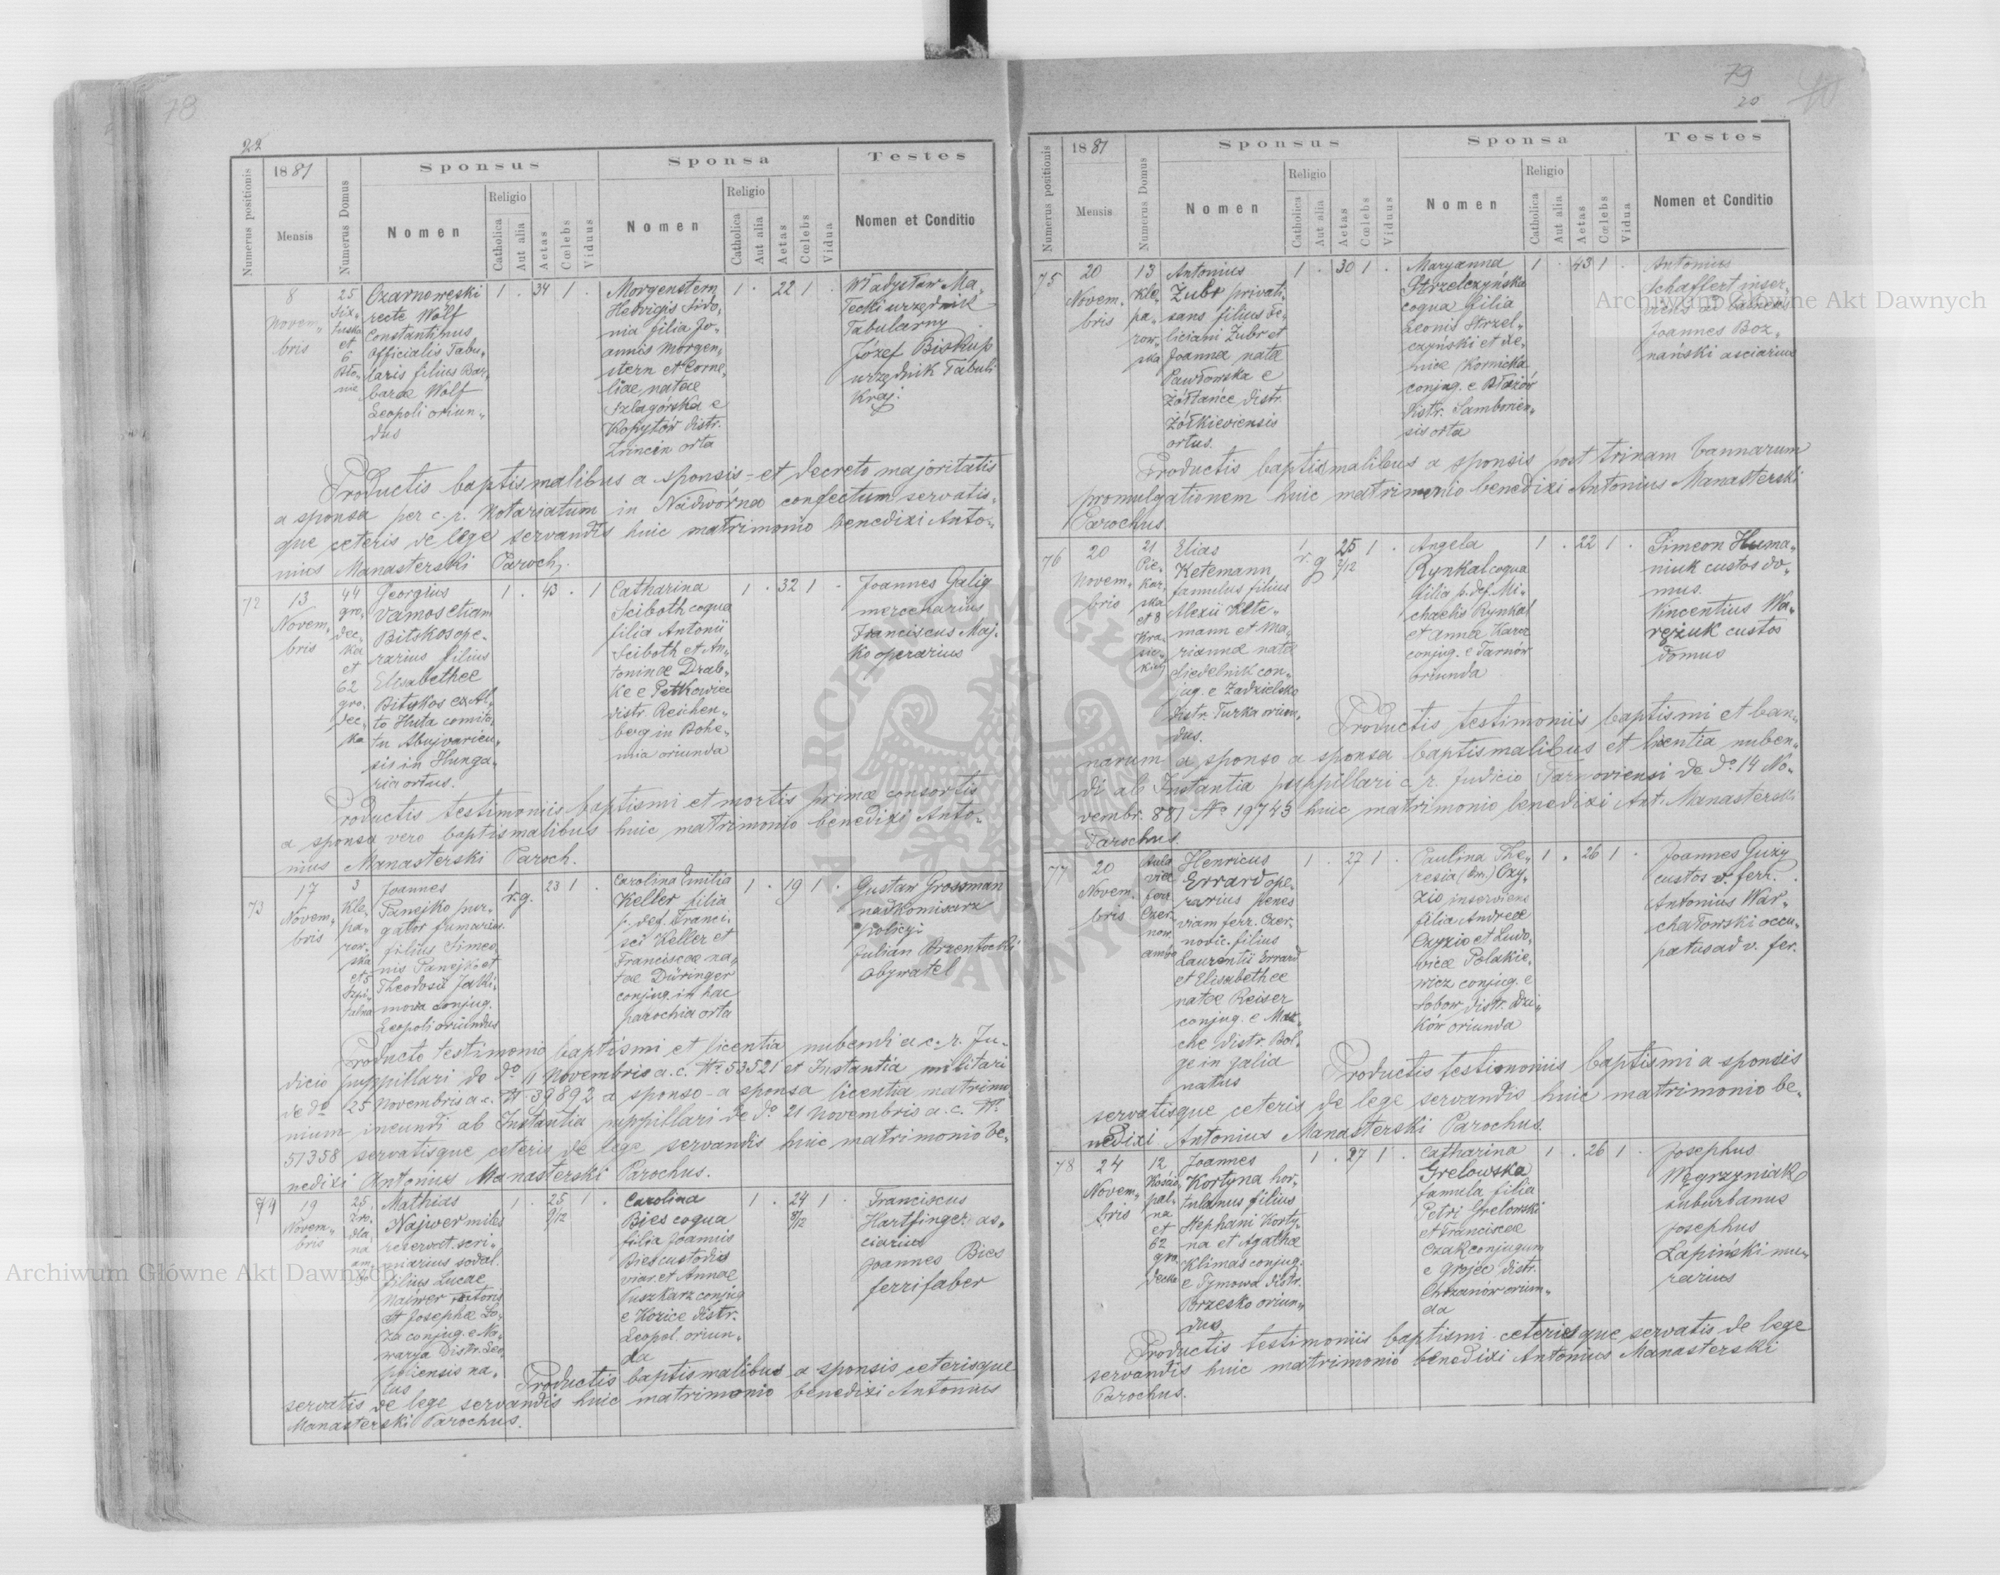 78
22
Numerus positionis
1881
Mensis
Numerus Domus
Sponsus
Nomen
Religio
Catholica
Aut alia
Aetas
Cœlebs
Viduus
Sponsa
Nomen
Religio
Catholica
Aut alia
Aetas
Cœlebs
Vidua
Testes
Nomen et Conditio
8
Novem-
bris
25
Six-
tuska
et
6
Bło-
nie
Czarnowęski
recte Wolf
Constantinus
Officialis Tabu-
laris filius Bar-
barae Wolf
Leopoli oriun-
dus
1 . 34 1 .
Morgenstern
Hedvigis Sido-
nia filia Jo-
annis Morgen-
stern et Corne-
liae natae
Szlagórska e
Kopytów distr.
orta
1 . 22 1 .
Władysław Ma-
Tabularny
Józef Biskup
urzędnik Tabuli
Kraj.
Productis baptismalibus a sponsis et decreto majoritatis
a sponsa per c. r. Notariatum in Nadwórna confectum servatis-
que ceteris de lege servandis huic matrimonio benedixi Anto-
nius Manasterski Paroch.
72
13
Novem-
bris
44
gro-
dec-
ka
et
62
gro-
dec-
ka
Georgius
Vamos etiam
Bitskos ope-
rarius filius
Elisabethae
Bitskos ex Al-
to Huta comita-
tu Abujvarien-
sis in Hunga-
ria ortus.
1 . 43 . 1
Catharina
Sciboth coqua
filia Antonii
Sciboth et An-
toninae Drab-
ke e Petkowiec
distr. Reichen-
berg in Bohe-
mia oriunda
1 . 32 1 .
Joannes Galig
mercenarius
Franciscus Maj-
ko operarius
Productis testimoniis baptismi et mortis primae consortis
a sponsa vero baptismalibus huic matrimonio benedixi Anto-
nius Manasterski Paroch.
73
17
Novem-
bris
3
Kle-
pa-
row-
ska
et 5
Szpi-
talna
Joannes
Panejko pur-
gator fumarius
filius Simeo-
nis Panejko et
Theodosii Jaki-
mowa conjug.
Leopoli oriundus
1
r. g.
23 1 .
Carolina Emilia
Keller filia
p. def. Franci-
sci Keller et
Franciscae na-
tae Düringer
conjug. in hac
parochia orta
1 . 19 1 .
Gustaw Grossman
nadkomisarz
policyi
Julian Brzentocki
obywatel
Producto testimonio baptismi et licentia nubendi a c. r. Ju-
dicio puppillari de do 11 Novembris a. c. No 53521 et Instantia militari
de do 25 Novembris a. c. No 39892 a sponso - a sponsa licentia matrimo-
nium ineundi ab Instantia puppillari de do 21 Novembris a. c. No
51358 servatisque ceteris de lege servandis huic matrimonio be-
nedixi Antonius Manasterski Parochus.
74
19
Novem-
bris
25
Mathias
Najwer miles
reservat. scri-
niarius sodal.
filius Lucae
Naiwer
et Josephae Lo-
za conjug. e Na-
warya Distr. Leo
poliensis na-
tus
1 . 25 9/12 1 .
Carolina
Bies coqua
filia Joannis
Bies custodis
viar. et Annae
Puszkarz conjug
e Hozice distr.
Leopol. oriun-
da
1 . 24 8/12 1 .
Franciscus
Hartfinger as-
ciarius
Joannes Bies
ferrifaber
Productis baptismalibus a sponsis ceterisque
servatis de lege servandis huic matrimonio benedixi Antonius
Manasterski Parochus.
79
20
Numerus positionis
1881
Mensis
Numerus Domus
Sponsus
Nomen
Religio
Catholica
Aut alia
Aetas
Cœlebs
Viduus
Sponsa
Nomen
Religio
Catholica
Aut alia
Aetas
Cœlebs
Vidua
Testes
Nomen et Conditio
75
20
Novem-
bris
13
Kle-
pa-
row-
ska
Antonius
Żubr privati-
sans filius Fe-
liciani Żubr et
Joanna nata
Pawłowska e
Żółtańce distr.
Żółkieviensis
ortus.
1 . 30 1 .
Maryanna
Strzelczyńska
coqua filia
Leonis Strzel-
czyński et Xe-
niae Kornicka
conjug. e Błażów
distr. Sambrien-
sis orta
1 . 43 1 .
Antonius
Schaffert inser-
viens ad balneas
Joannes Boz-
nański asciarius
Productis baptismalibus a sponsis post trinam bannarum
promulgationem huic matrimonio benedixi Antonius Manasterski
Parochus.
76
20
Novem-
bris
21
Pie-
kar-
ska
et 8
Kra-
sic-
kich
Elias
Ketemann
famulus filius
Alexii Kete-
mann et Ma-
rianna nata
Siedelnik con-
jug. e Zadzielsko
distr. Turka oriun-
dus.
1
r. g
25 3/12 1 .
Angela
Rynkal coqua
filia p. def. Mi-
chaelis Rynkal
et Annae Karcz
conjug. e Tarnów
oriunda
1 . 22 1 .
Simeon Huma-
niuk custos do-
mus.
Vincentius Wa-
rężuk custos
domus
Productis testimoniis baptismi et ban-
narum a sponso a sponsa baptismalibus et licentia nuben-
di ab Instantia puppillari c. r. Judicio Tarnoviensi de do 14 No-
vembr. 881 No 19743 huic matrimonio benedixi Ant. Manasterski
Parochus.
77
20
Novem-
bris
Henricus
Errard ope-
rarius penes
viam ferr. Czer-
novic. filius
Laurentii Errard
et Elisabethae
natae Reiser
conjug. e Maz-
che distr. Bol-
ge in galia
natus
1 . 27 1 .
Paulina The-
resia (bis.) Czy-
zio inserviens
filia Andreae
Czyzio et Ludo-
vicae Polakie-
wicz conjug. e
Sobow distr. Dzi-
ków oriunda
1 . 26 1 .
Joannes Guzy
custos v. ferr.
Antonius War-
chałowski occu-
patus ad v. fer.
Productis testimoniis baptismi a sponsis
servatisque ceteris de lege servandis huic matrimonio be-
nedixi Antonius Manasterski Parochus
78
24
Novem-
bris
12
et
62
gro
decka
Joannes
Kortyna hor-
tulanus filius
Stephani Korty-
na et Agathae
Klimas conjug.
e Tymowa distr.
Brzesko oriun-
dus
1 . 27 1 .
Catharina
Grelowska
famula filia
Petri Grelowski
et Franciscae
Czak conjugum
e Grojec distr.
Chrzanów oriun-
da
1 . 26 1 .
Josephus
Węgrzyniak
suburbanus
Josephus
Łapiński mu-
rarius
Productis testimoniis baptismi ceterisque servatis de lege
servandis huic matrimonio benedixi Antonius Manasterski
Parochus.
Archiwum Główne Akt Dawnych
Archiwum Główne Akt Dawnych
ARCHIWUM GŁÓWNE AKT DAWNYCH